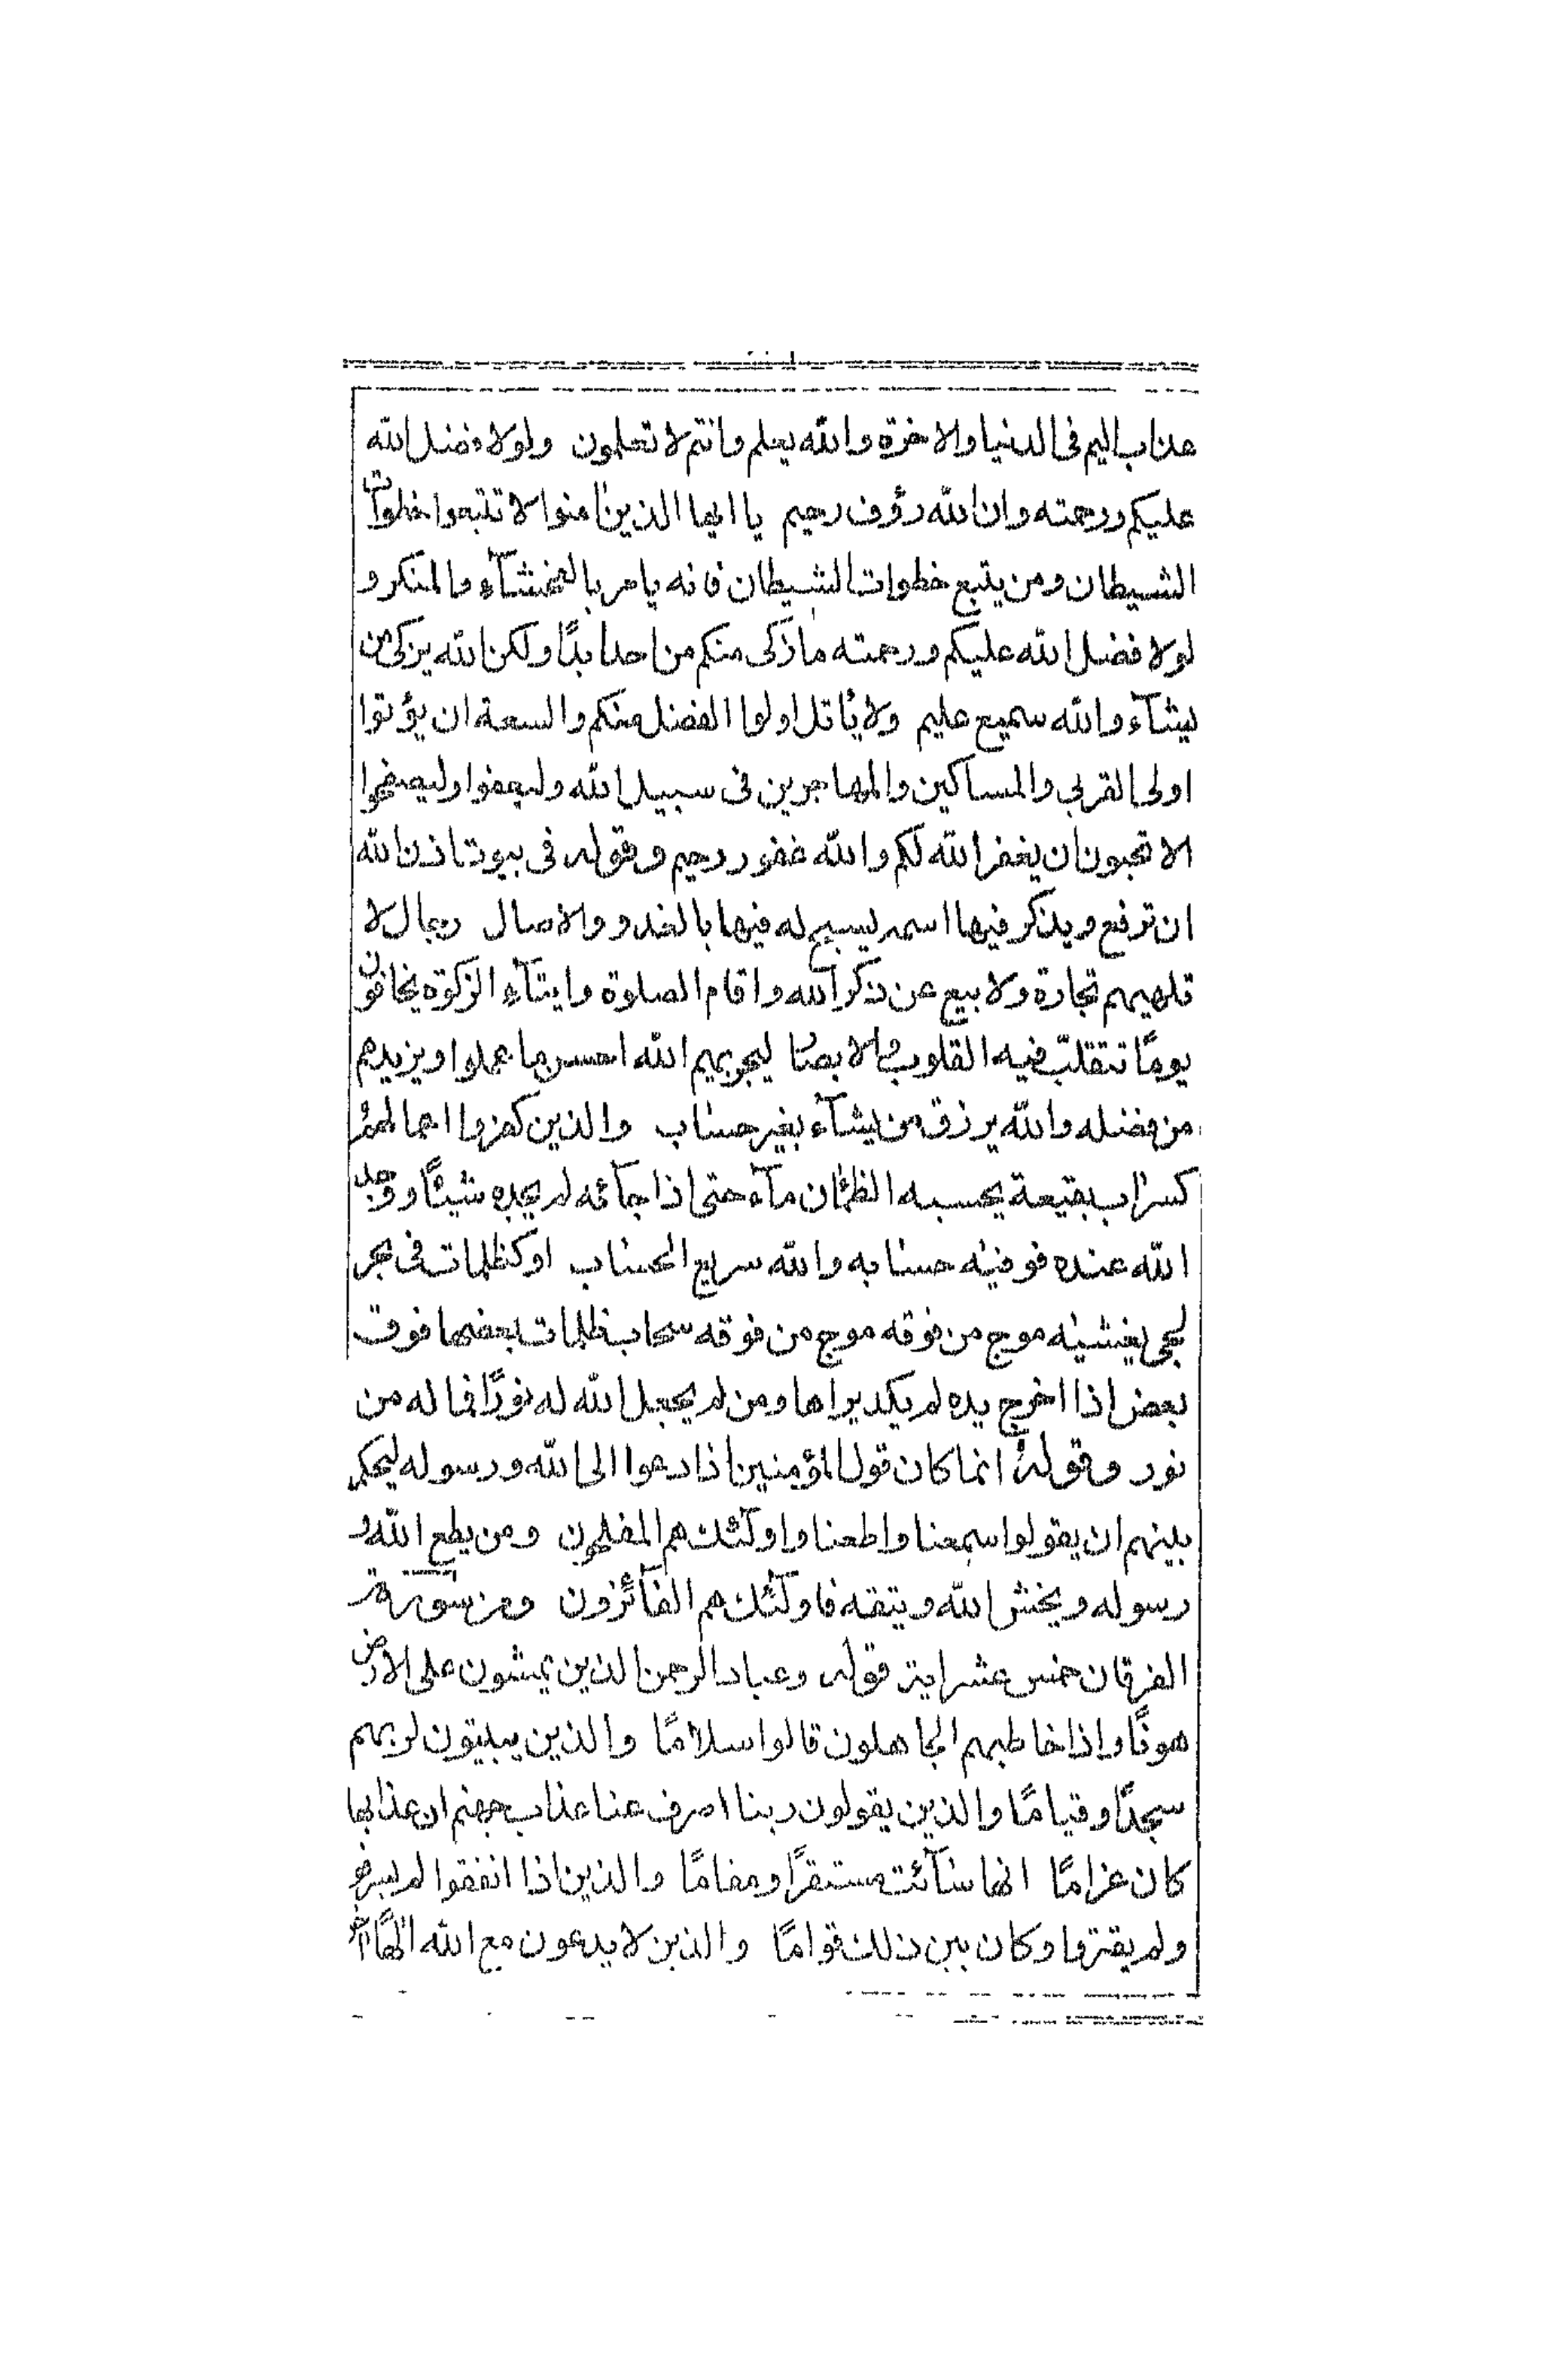 عذاب اليم فى الدنيا والاخرة والله يعلم وانتم لا تعلمون ولولا فضل الله
عليكم ورحمته وان الله رؤف رحيم يا ايها الذين امنوا لا تتبعوا خطوات
الشيطان ومن يتبع خطوات الشيطان فانه يامر بالفحشآء والمنكر و
لولا فضل الله عليكم ورحمته ما زكى منكم من احد ابدًا ولكن الله يزكى من
يشآء والله سميع عليم ولا يأتل اولوا الفضل منكم والسعة ان يؤتوا
اولى القربى والمساكين والمهاجرين فى سبيل الله وليعفوا وليصفحوا
الا تحبون ان يغفر الله لكم والله غفور رحيم وقوله فى بيوت اذن الله
ان ترفع ويذكر فيها اسمه يسبح له فيها بالغدو والاصال رجال لا
تلهيهم تجارة ولا بيع عن ذكر الله واقام الصلوة وايتآء الزكوة يخافون
يومًا تتقلب فيه القلوب والابصار ليجزيهم الله احسن ما عملوا ويزيدهم
من فضله والله يرزق من يشآء بغير حساب والذين كفروا اعمالهم
كسراب بقيعة يحسبه الظمان مآء حتى اذا جآئه لم يجده شيئًا ووجد
الله عنده فوفيه حسابه والله سريع الحساب او كظلمات فى بحر
لجى يغشيه موج من فوقه موج من فوقه سحاب ظلمات بعضها فوق
بعض اذا اخرج يده لم يكد يراها ومن لم يجعل الله له نورًا فما له من
نور وقوله انما كان قول المؤمنين اذا دعوا الى الله ورسوله ليحكم
بينهم ان يقولوا سمعنا واطعنا واولئك هم المفلحون ومن يطع الله و
رسوله ويخش الله ويتقه فاولئك هم الفآئزون ومن سورة
الفرقان خمس عشر اية قوله وعباد الرحمن الذين يمشون على الارض
هونًا واذا خاطبهم الجاهلون قالوا سلامًا والذين يبيتون لربهم
سجدًا وقيامًا والذين يقولون ربنا اصرف عنا عذاب جهنم ان عذابها
كان غرامًا انها سآئت مستقرًا ومقامًا والذين اذا انفقوا لم يسرفوا
ولم يقتروا وكان بين ذلك قوامًا والذين لا يدعون مع الله الهًا اخر